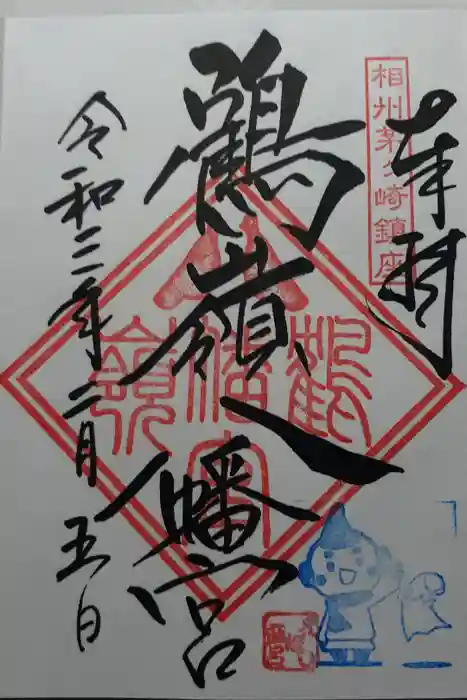 奉拝
相州茅ヶ崎鎮座
鶴嶺八幡宮
令和三年二月五日
鶴嶺八幡宮